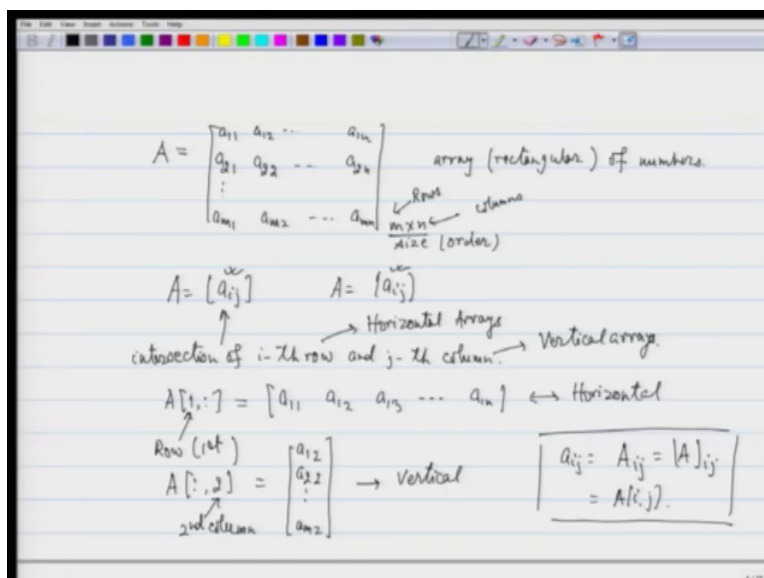 File Edit View Insert Actions Tools Help
B I
A = [a11 a12 ... a1n
a21 a22 ... a2n
⋮
am1 am2 ... amn] m×n
array (rectangular) of numbers.
Rows
columns
size (order)
A = [aij] A = (aij)
Horizontal Arrays
intersection of i-th row and j-th column. Vertical arrays.
A[1,:] = [a11 a12 a13 ... a1n] ↔ Horizontal
Row (1st)
A[:,2] = [a12
a22
⋮
am2] → Vertical
2nd column
aij = Aij = [A]ij
= A[i,j].